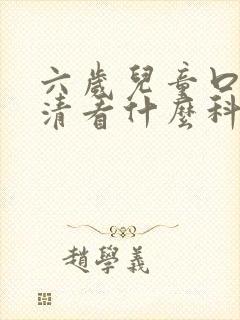 六歲兒童口
清看什麼科
趙學義